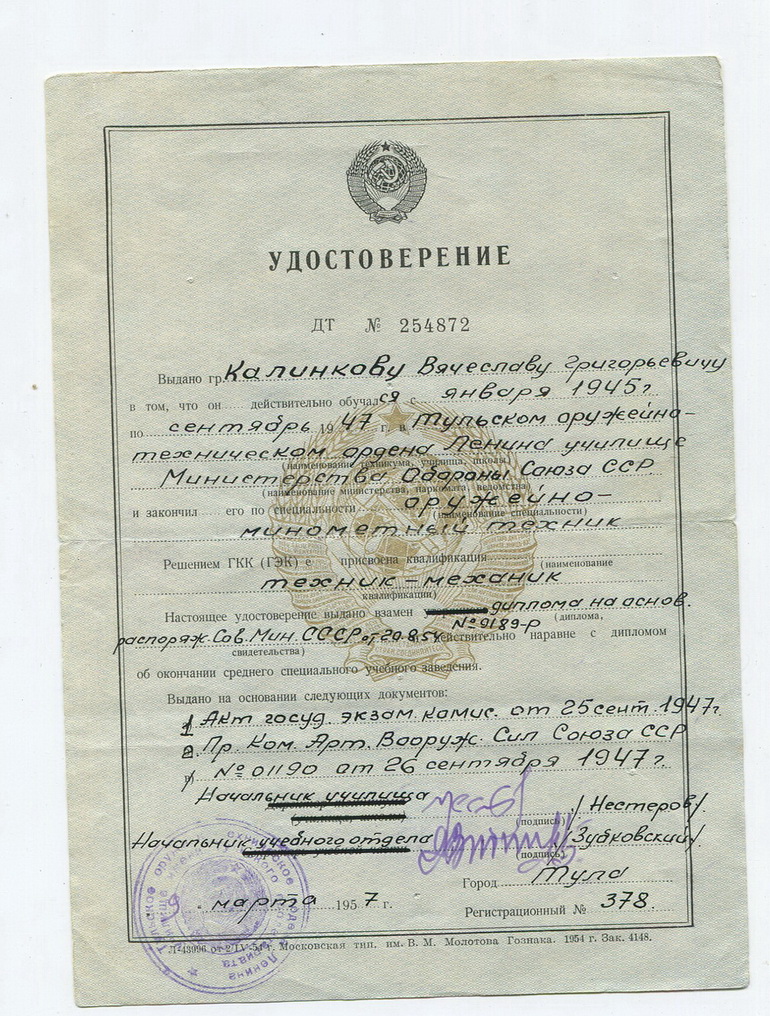 УДОСТОВЕРЕНИЕ
ДТ № 254872
Выдано гр. Калинкову Вячеславу Григорьевичу
в том, что он действительно обучался с января 1945 г.
по сентябрь 1947 г. в Тульском оружейно-
техническом ордена Ленина училище
(наименование техникума, училища, школы)
Министерства Обороны Союза ССР
(наименование министерства, наркомата, ведомства)
и закончил его по специальности оружейно-
(наименование специальности)
минометный техник
Решением ГКК (ГЭК) е присвоена квалификация
(наименование
техник-механик
квалификации)
Настоящее удостоверение выдано взамен диплома на основ.
(диплома,
№ 9189-р
распоряж. Сов. Мин. СССР от 20.8.54 действительно наравне с дипломом
свидетельства)
об окончании среднего специального учебного заведения.
Выдано на основании следующих документов:
1. Акт госуд. экзам. комис. от 25 сент. 1947г.
2. Пр. Ком. Арт. Вооруж. Сил Союза ССР
№ 01190 от 26 сентября 1947 г.
Начальник училища
/Нестеров/
(подпись)
Начальник учебного отдела
/Зубковский/
(подпись)
Город Тула
марта 1957 г.
Регистрационный № 378.
Л-43996 от 2/IV-54 г. Московская тип. им. В. М. Молотова Гознака. 1954 г. Зак. 4148.